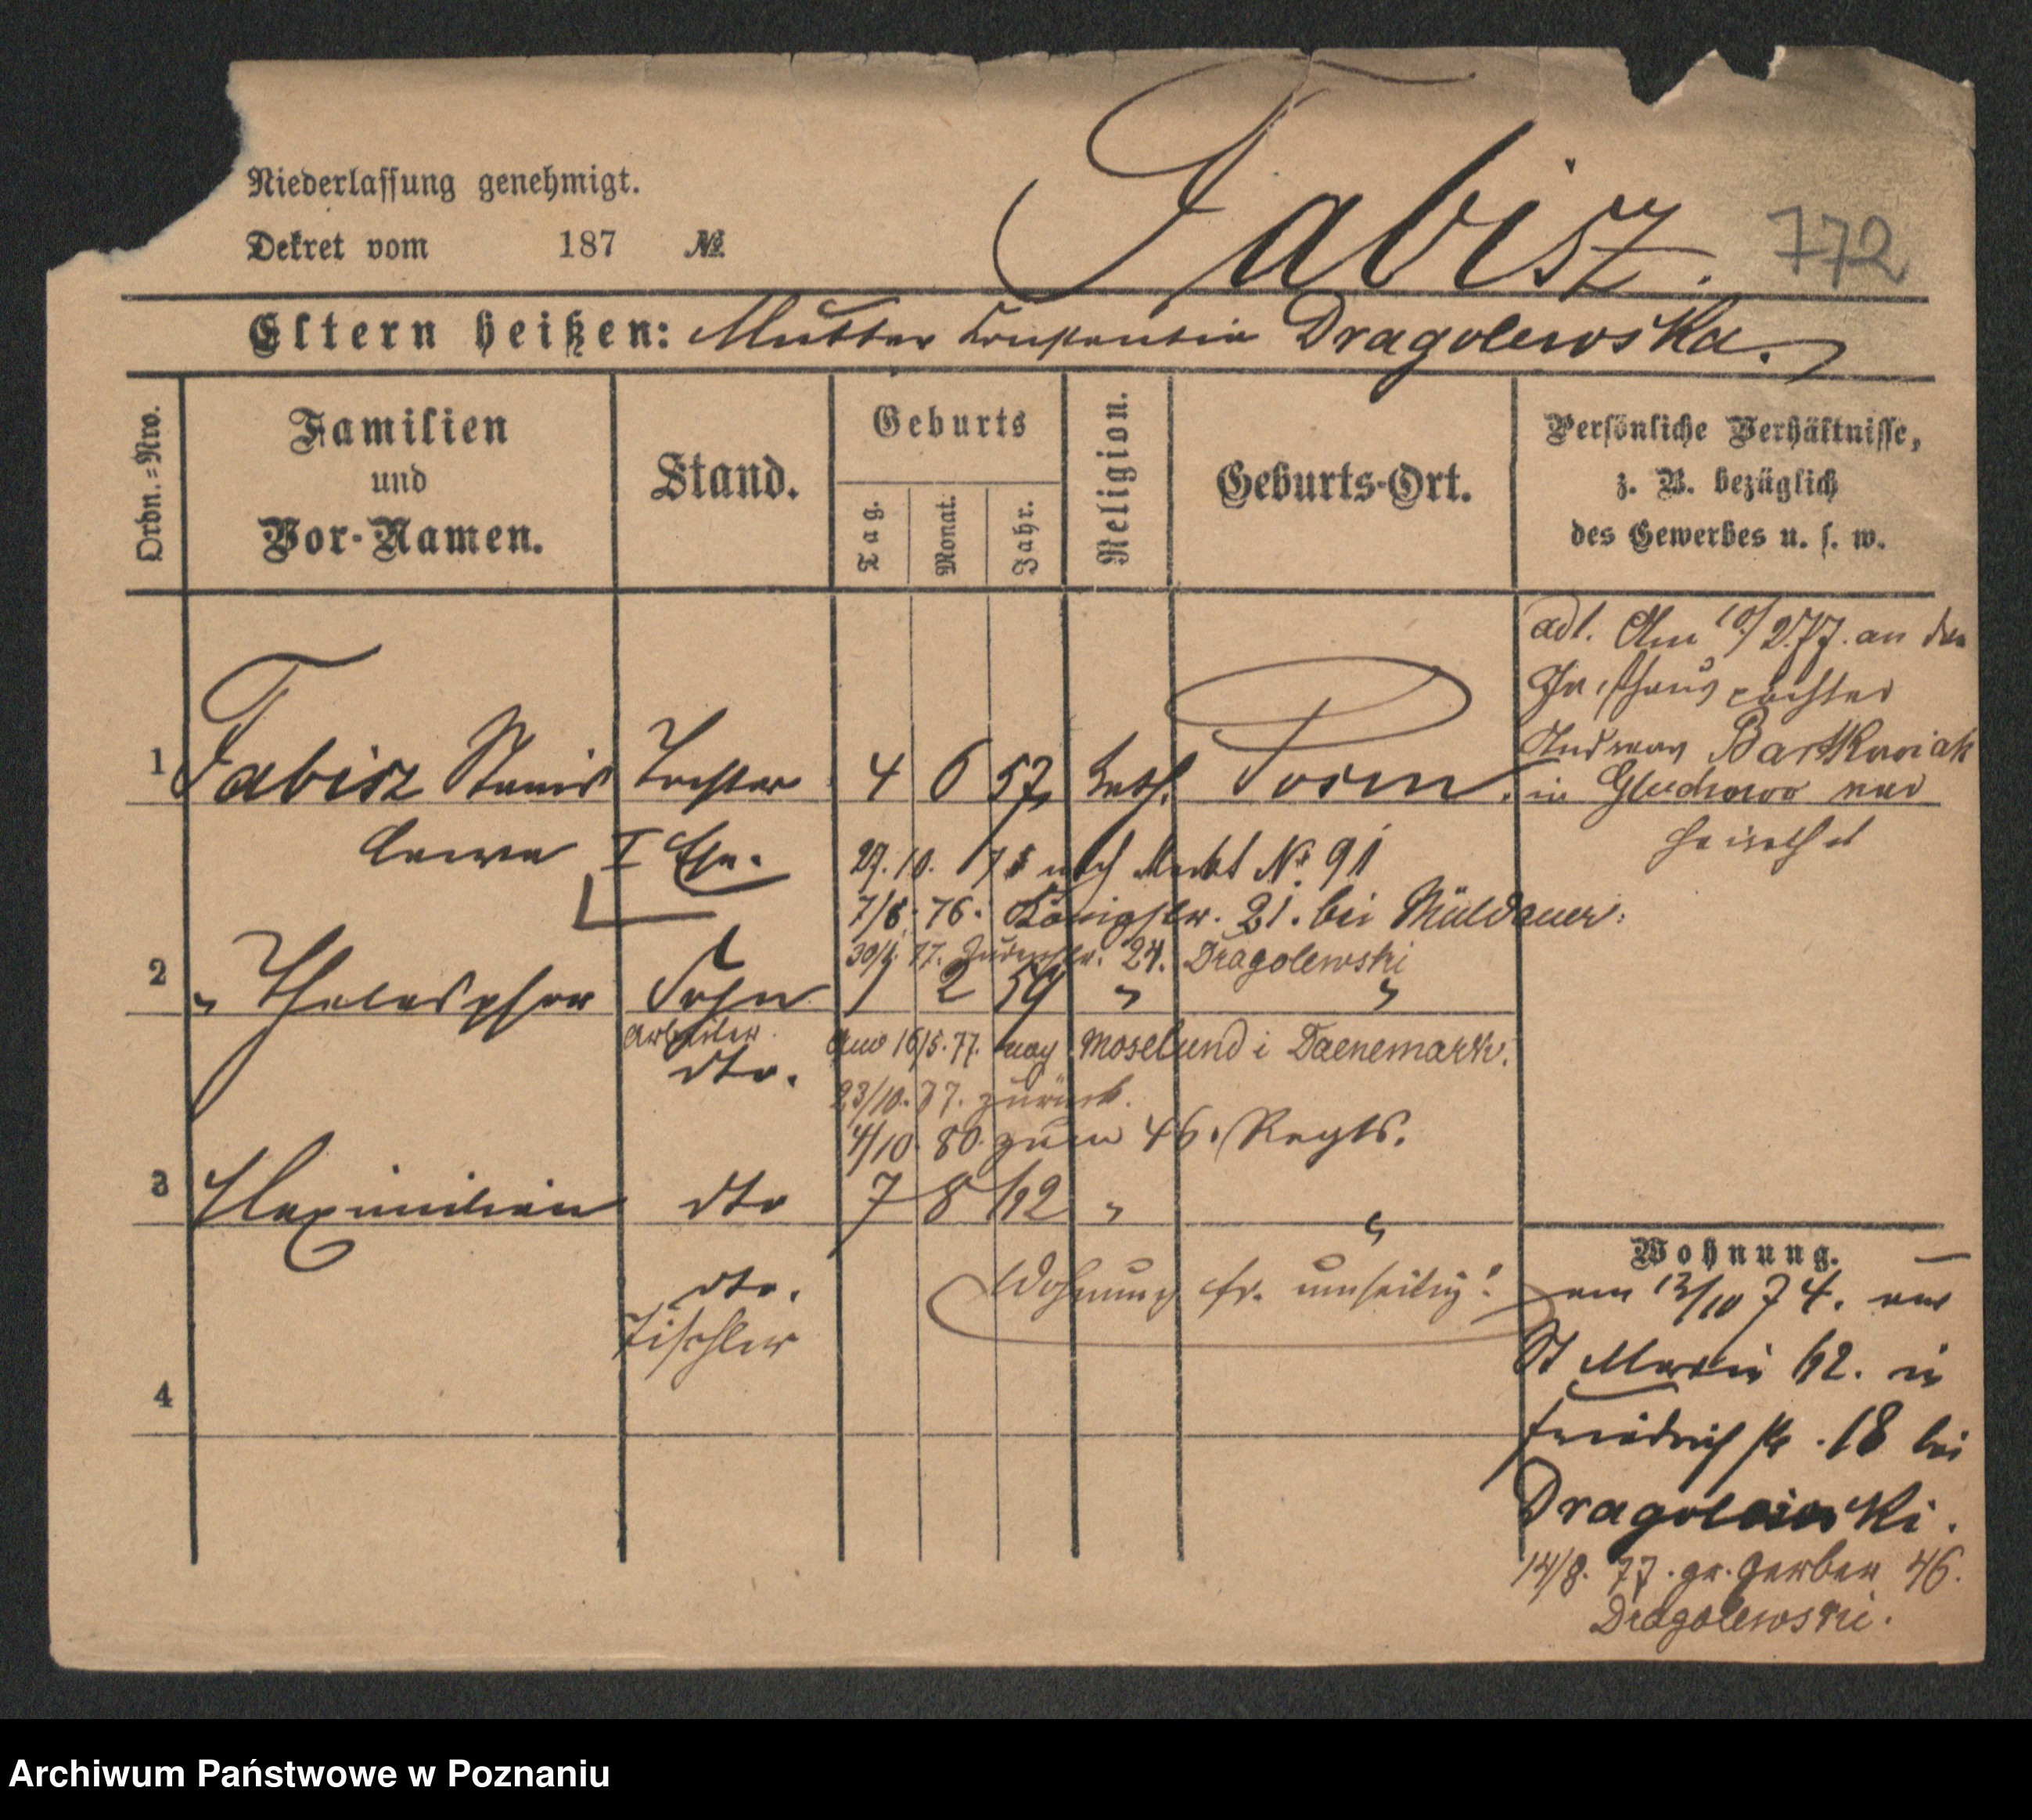 Niederlassung genehmigt.
Dekret vom 187 №
Fabisz.
772
Eltern heißen: Mutter Constantia Dragolewska.
Ordn.=Nro.
Familien
und
Vor-Namen.
Stand.
Geburts
Tag.
Monat.
Jahr.
Religion.
Geburts-Ort.
Persönliche Verhältnisse,
z. B. bezüglich
des Gewerbes u. s. w.
ad 1. Am 10/2.77. an den
Gasthauspächter
Andreas Bartkowiak
in Gluchowo ver
heirathet
1 Fabisz Stanis Tochter 4 6 57 kath. Posen.
lawa I Ehe.
27.10. 75 nach Markt № 91
7/6. 76. Königstr. 21. bei Müldauer.
77. 24. Dragolewski
2 " Thelesphor Sohn 1 2 59 " "
Arbeiter
dto.
16/5. 77. nach Moselund i Daenemark.
23/10. 77. zurück.
4/10. 80. zum 46. Regts.
3 Maximilian dto 7 8 62 " "
dto.
Tischler
Wohnung sr. umseitig!
4
Wohnung.
am 12/10 74. von
St Martin 62. in
Friedrichstr. 18 bei
Dragolewski.
14/8. 77. gr. Gerber 46.
Dragolewski.
Archiwum Państwowe w Poznaniu